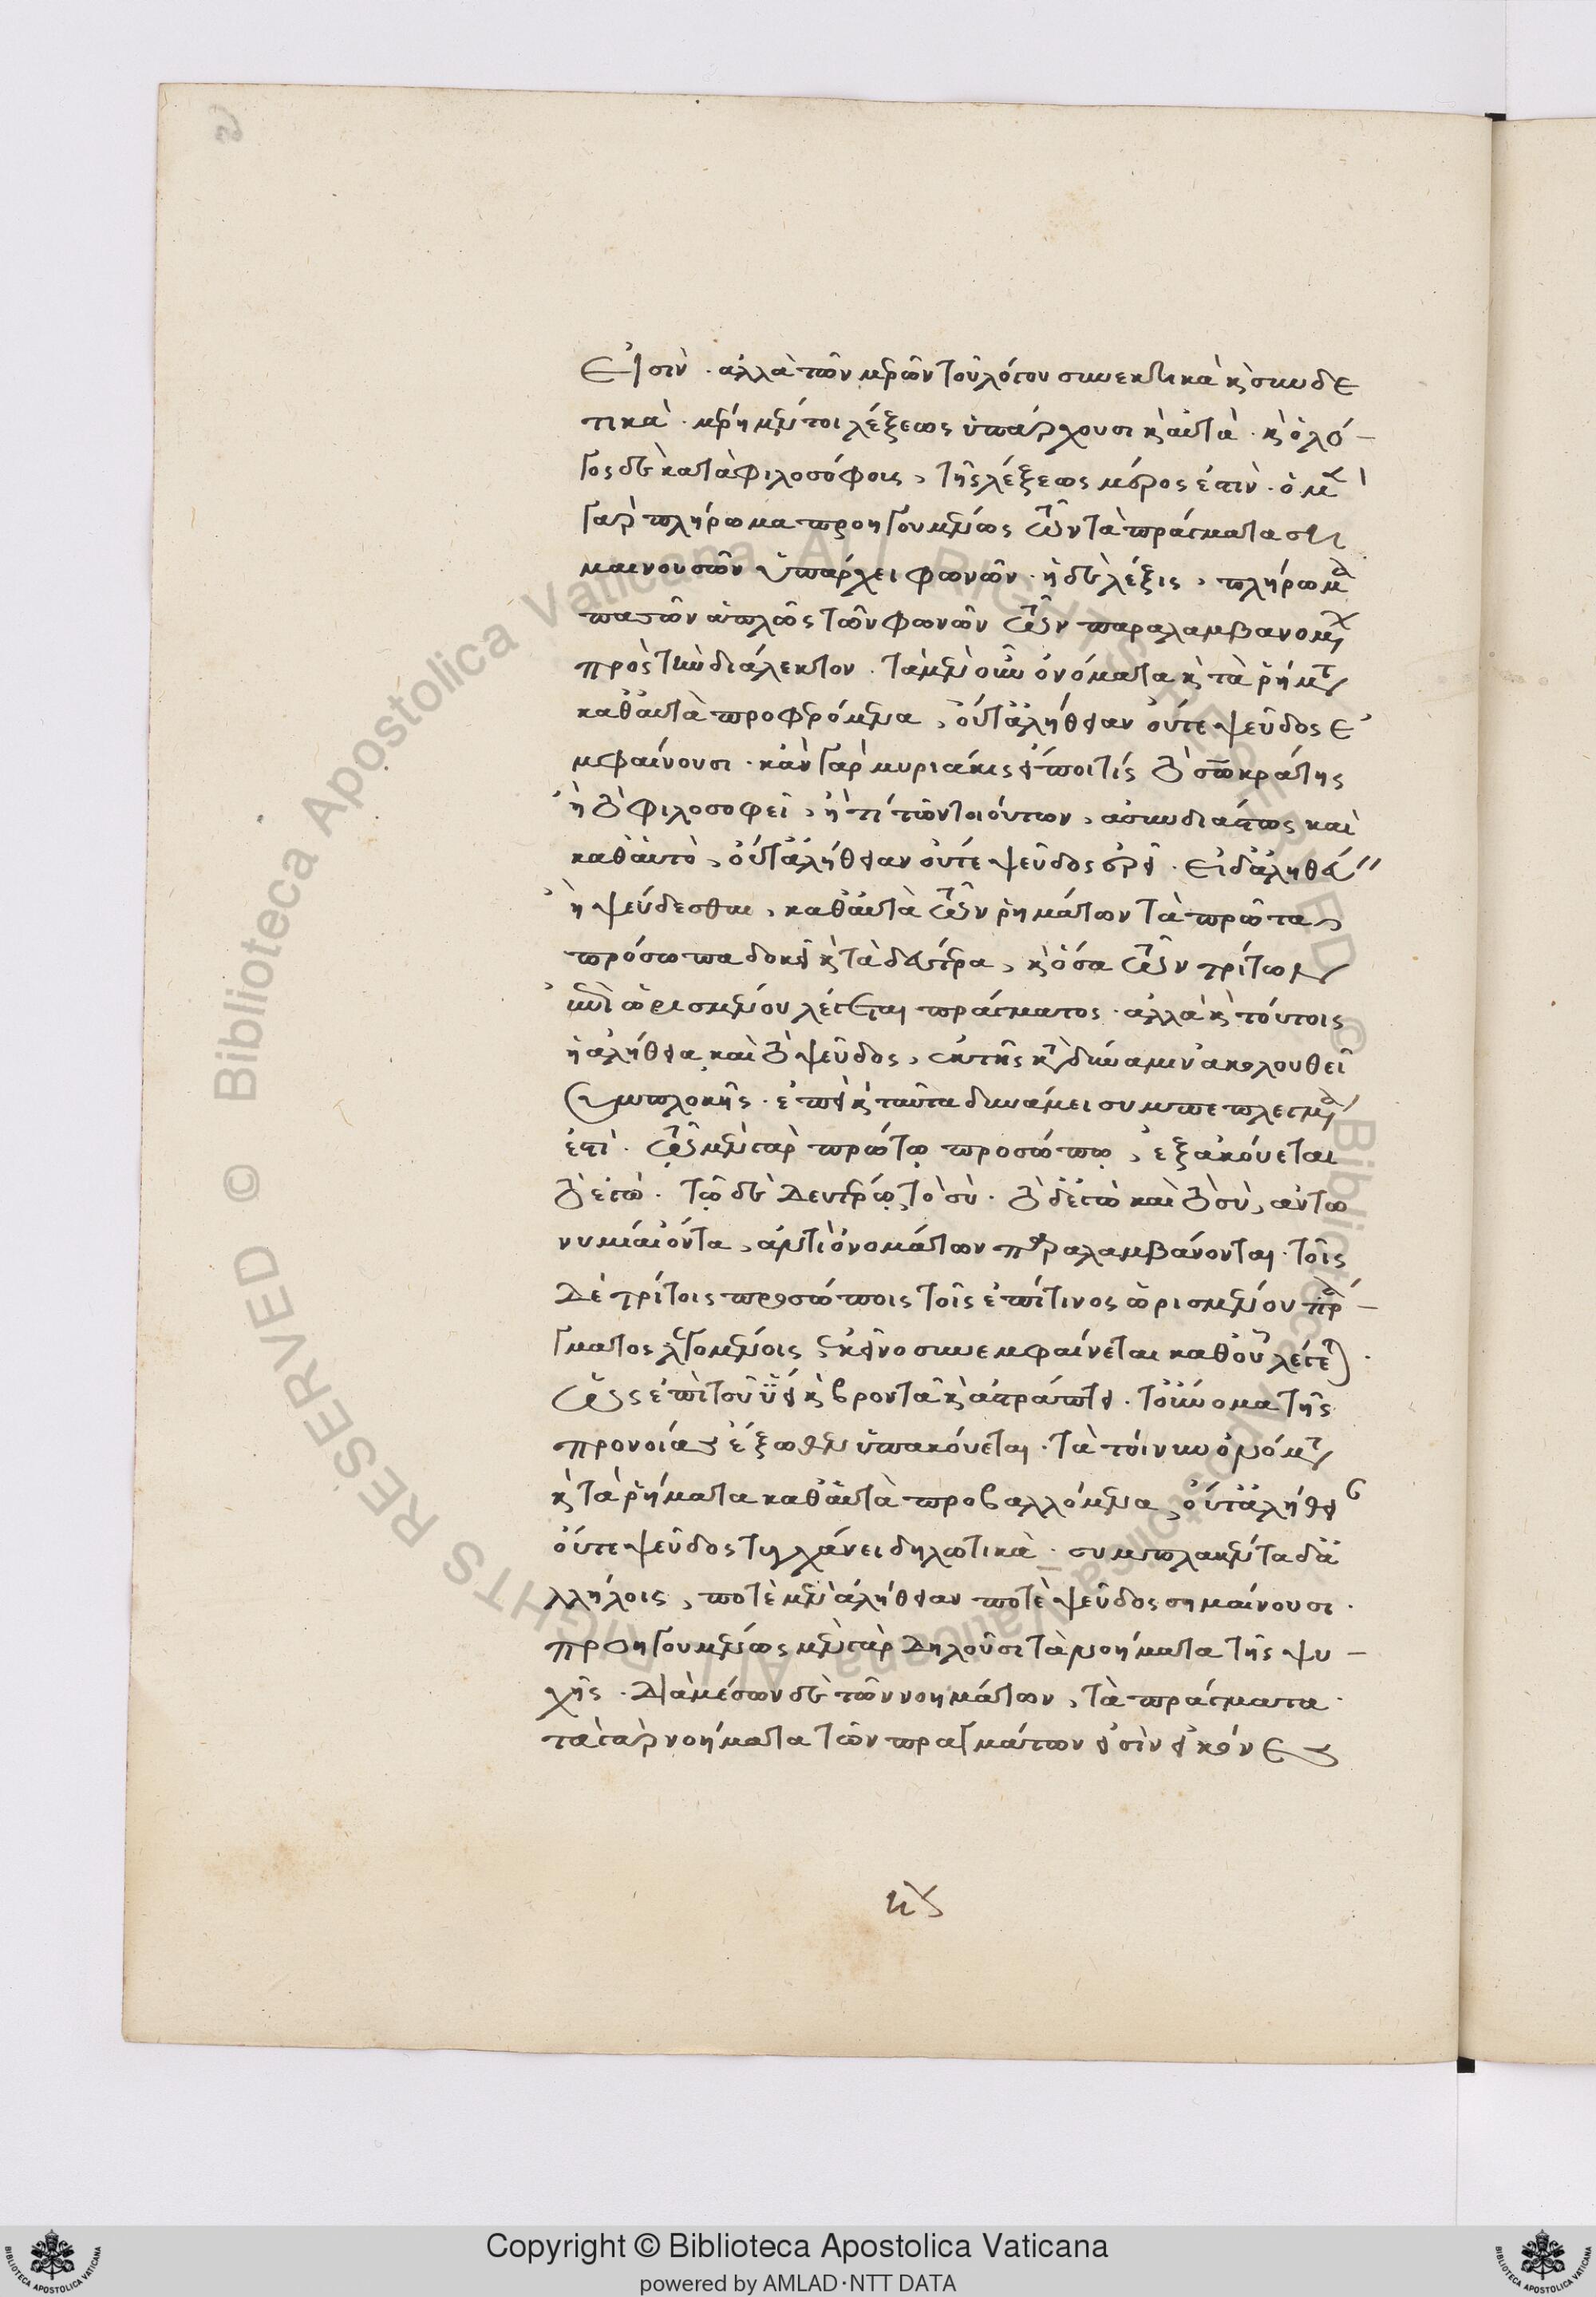 εἰσίν. ἀλλὰ τῶν μερῶν τοῦ λόγου συνεκτικὰ καὶ συνδε
τικά. μέρη μέντοι λέξεως ὑπάρχουσι καὶ αὐτά. καὶ ὁ λό-
γος δὲ κατὰ φιλοσόφοις, τῆς λέξεως μέρος ἐστίν. ὁ μὲν
γὰρ πλήρωμα προηγουμένως τῶν τὰ πράγματα ση
μαινουσῶν ὑπάρχει φωνῶν. ἡ δὲ λέξις, πλήρωμα
πασῶν ἁπλῶς τῶν φωνῶν τῶν παραλαμβανομένων
πρὸς τὴν διάλεκτον. τὰ μὲν οὖν ὀνόματα καὶ τὰ ῥήματα
καθ' αὑτὰ προφερόμενα, οὔτ' ἀλήθειαν οὔτε ψεῦδος ἐ
μφαίνουσι. κἂν γὰρ μυριάκις εἴποι τίς τὸ σωκράτης
ἢ τὸ φιλοσοφεῖ, ἤ τι τῶν τοιούτων, ἀσυνδιάστως καὶ
καθ' αὑτὸ, οὔτ' ἀλήθειαν οὔτε ψεῦδος ἐρεῖ. εἰ δ' ἀληθεύειν
ἢ ψεύδεσθαι, καθ' αὑτὰ τῶν ῥημάτων τὰ πρῶτα
πρόσωπα δοκεῖ καὶ τὰ δεύτερα, καὶ ὅσα τῶν τρίτων
ἐπὶ ὡρισμένου λέγεται πράγματος. ἀλλὰ καὶ τούτοις
ἡ ἀλήθεια καὶ τὸ ψεῦδος, ἐκ τῆς κατὰ δύναμιν ἀκολουθεῖ
συμπλοκῆς. ἐπεὶ καὶ ταῦτα δυνάμει συμπεπλεγμένα
ἐστί. τῷ μὲν γὰρ πρώτῳ προσώπῳ, ἐξακούεται
τὸ ἐγώ. τῷ δὲ δευτέρῳ, τὸ σύ. τὸ δ' ἐγὼ καὶ τὸ σὺ, ἀντω
νυμίαι ὄντα, ἀντὶ ὀνομάτων παραλαμβάνονται. τοῖς
δὲ τρίτοις προσώποις τοῖς ἐπί τινος ὡρισμένου πρά-
γματος λεγομένοις, ἐκεῖνο συνεμφαίνεται καθ' οὗ λέγεται.
ὡς ἐπὶ τοῦ ὕει καὶ βροντᾶ καὶ ἀστράπτει. τὸ ὄνομα τῆς
προνοίας ἔξωθεν ὑπακούεται. τὰ τοίνυν ὀνόματα
καὶ τὰ ῥήματα καθ' αὑτὰ προβαλλόμενα, οὔτ' ἀληθείας
οὔτε ψεῦδος τυγχάνει δηλωτικά. συμπλακέντα δ' ἀ
λλήλοις, ποτὲ μὲν ἀλήθειαν ποτὲ ψεῦδος σημαίνουσι.
προηγουμένως μὲν γὰρ δηλοῦσι τὰ νοήματα τῆς ψυ-
χῆς. διὰ μέσων δὲ τῶν νοημάτων, τὰ πράγματα.
τὰ γὰρ νοήματα τῶν πραγμάτων εἰσὶν εἰκόνες
Copyright © Biblioteca Apostolica Vaticana
powered by AMLAD·NTT DATA